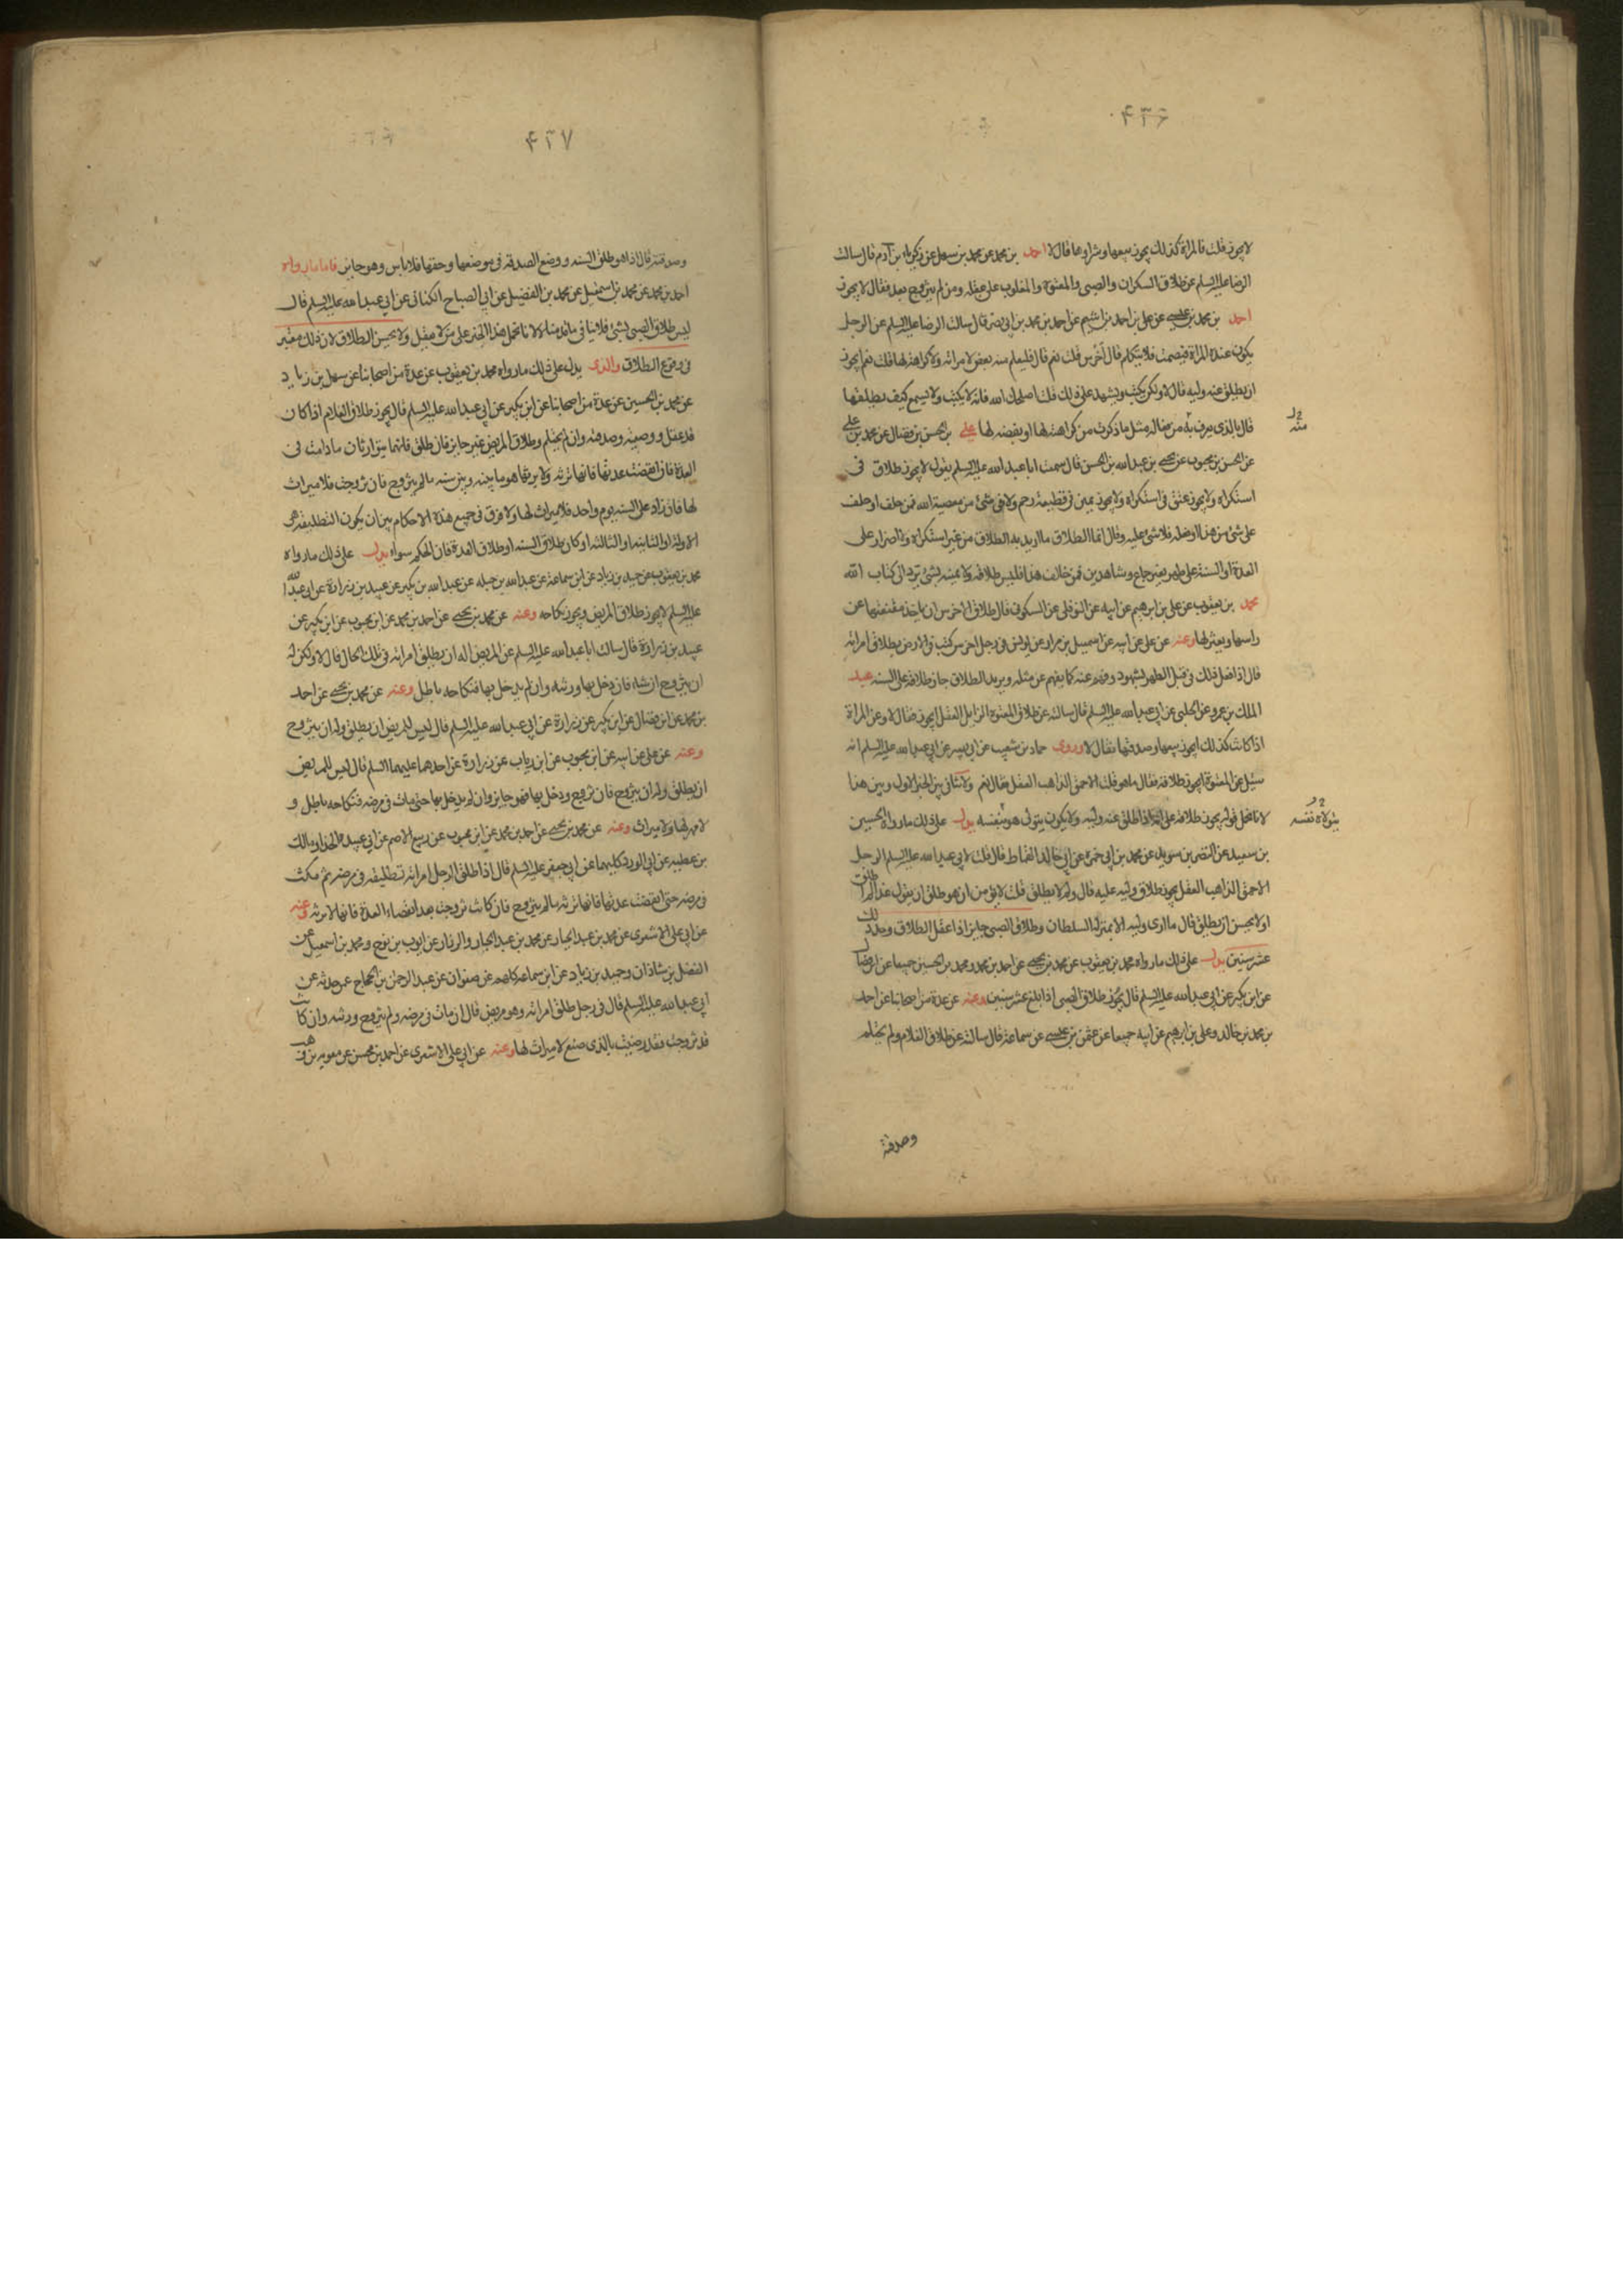 ۴۳۶
لا يجوز قلت فالمراة كذلك يجوز بيعها وشراوها قال لا احمد بن محمد عن محمد بن سهل عن زكريا بن آدم قال سالت
الرضا عليه السلم عن طلاق السكران والصبى والمعتوه والمغلوب على عقله ومن لم يتزوج بعد فقال لا يجوز
احمد بن محمد بن عيسى عن على بن احمد بن اشيم عن احمد بن محمد بن ابى نصر قال سالت الرضا عليه السلم عن الرجل
يكون عنده المراة فيصمت فلا يتكلم قال اخرس قلت نعم قال فليعلم منه بغض لامراته وكراهته لها قلت نعم ايجوز
ان يطلق عنه وليه قال لا ولكن يكتب ويشهد على ذلك قلت اصلحك الله فانه لا يكتب ولا يسمع كيف يطلقها
قال بالذى يعرف به من فعاله مثل ما ذكرت من كراهته لها او بغضه لها على بن الحسن بن فضال عن محمد بن على
عن الحسن بن محبوب عن يحيى بن عبدالله بن الحسن قال سمعت ابا عبد الله عليه السلم يقول لا يجوز طلاق فى
استكراه ولا يجوز عتق فى استكراه ولا يجوز يمين فى قطيعة رحم ولا فى شئ من معصية الله فمن حلف او حلف
على شئ من هذا او فعله فلا شئ عليه وقال انما الطلاق ما اريد به الطلاق من غير استكراه ولا اضرار على
العدة او السنة على طهر بغير جماع وشاهدين فمن خالف هذا فليس طلاقه ولا يمينه بشئ يرد الى كتاب الله
محمد بن يعقوب عن على بن ابرهيم عن ابيه عن النوفلى عن السكونى قال طلاق الاخرس ان ياخذ مقنعتها على
راسها ويعتزلها وعنه عن على عن ابيه عن اسمعيل بن مرار عن يونس فى رجل اخرس كتب فى الارض بطلاق امراته
قال اذا فعل ذلك فى قبل الطهر بشهود وفهم عنه كما يفهم عن مثله ويريد الطلاق جاز طلاقه على السنه عبد
الملك بن عمرو عن الحلبى عن ابى عبدالله عليه السلم قال سالته عن طلاق المعتوه الزايل العقل ايجوز فقال لا وعن المراة
اذا كانت كذلك ايجوز بيعها وصدقتها فقال لا وروى حماد بن شعيب عن ابى بصير عن ابى عبدالله عليه السلم انه
سئل عن المعتوه ايجوز طلاقه فقال ما هو قلت الاحمق الذاهب العقل فقال نعم ولا تنافى بين الخبر الاول وبين هذا
لانا نحمل قوله يجوز طلاقه على انه اذا طلق عنه وليه ولا يكون يتولى هو بنفسه يدل على ذلك ما رواه الحسين
بن سعيد عن النضر بن سويد عن محمد بن ابى حمزه عن ابى خالد القماط قال قلت لابى عبدالله عليه السلم الرجل
الاحمق الذاهب العقل يجوز طلاق وليه عليه قال ولم لا يطلق قلت لا يؤمن ان هو طلق ان يقول غدا لم اطلق
او لا يحسن ان يطلق قال ما ارى وليه الا بمنزلة السلطان وطلاق الصبى جايز اذا عقل الطلاق وحد ذلك
عشر سنين يدل على ذلك ما رواه محمد بن يعقوب عن محمد بن يحيى عن احمد بن محمد ومحمد بن الحسين جميعا عن ابن فضال
عن ابن بكير عن ابى عبدالله عليه السلم قال يجوز طلاق الصبى اذا بلغ عشر سنين وعنه عن عدة من اصحابنا عن احمد
بن محمد بن خالد وعلى بن ابرهيم عن ابيه جميعا عن عثمن بن عيسى عن سماعة قال سالته عن طلاق الغلام ولم يحتلم
منه
يتولاه نفسه
وصدقته
۴۳۷
وصدقته قال اذا هو طلق السنه ووضع الصدقه فى موضعها وحقها فلا باس وهو جايز فاما ما رواه
احمد بن محمد عن محمد بن اسمعيل عن محمد بن الفضيل عن ابى الصباح الكنانى عن ابى عبدالله عليه السلم قال
ليس طلاق الصبى بشئ فلا ينافى ما قدمناه لانا نحمل هذا الخبر على من لا يعقل ولا يحسن الطلاق لان ذلك معتبر
فى وقوع الطلاق والذى يدل على ذلك ما رواه محمد بن يعقوب عن عدة من اصحابنا عن سهل بن زياد
عن محمد بن الحسين عن عدة من اصحابنا عن ابن بكير عن ابى عبدالله عليه السلم قال يجوز طلاق الغلام اذا كان
قد عقل ووصيته وصدقته وان لم يحتلم وطلاق المريض غير جايز فان طلق فانهما يتوارثان ما دامت فى
العدة فان انقضت عدتها فانها ترثه ولا يرثها هو ما بينه وبين سنه ما لم يتزوج فان تزوجت فلا ميراث
لها فان زاد على السنه يوم واحد فلا ميراث لها ولا فرق فى جميع هذه الاحكام بين ان يكون التطليقه هى
الاولة او الثانيه او الثالثه او كان طلاق السنه او طلاق العدة فان الحكم سواء يدل على ذلك ما رواه
محمد بن يعقوب عن حميد بن زياد عن ابن سماعة عن عبدالله بن جبله عن عبدالله بن بكير عن عبيد بن زرارة عن ابى عبدالله
عليه السلم لا يجوز طلاق المريض ويجوز نكاحه وعنه عن محمد بن يحيى عن احمد بن محمد عن ابن محبوب عن ابن بكير عن
عبيد بن زرارة قال سالت ابا عبدالله عليه السلم عن المريض اله ان يطلق امراته فى تلك الحال قال لا ولكن له
ان يتزوج ان شاء فان دخل بها ورثته وان لم يدخل بها فنكاحه باطل وعنه عن محمد بن يحيى عن احمد
بن محمد عن ابن فضال عن ابن بكير عن زرارة عن ابى عبدالله عليه السلم قال ليس للمريض ان يطلق وله ان يتزوج
وعنه عن على عن ابيه عن ابن محبوب عن ابن رياب عن زرارة عن احدهما عليهما السلم قال ليس للمريض
ان يطلق وله ان يتزوج فان تزوج ودخل بها فهو جايز وان لم يدخل بها حتى مات فى مرضه فنكاحه باطل و
لا مهر لها ولا ميراث وعنه عن محمد بن يحيى عن احمد بن محمد عن ابن محبوب عن ربيع الاصم عن ابى عبيدة الحذا ومالك
بن عطيه عن ابى الورد كليهما عن ابى جعفر عليه السلم قال اذا طلق الرجل امراته تطليقه فى مرضه ثم مكث
فى مرضه حتى انقضت عدتها فانها ترثه ما لم يتزوج فان كانت تزوجت بعد انقضاء العدة فانها لا ترثه وعنه
عن ابى على الاشعرى عن محمد بن عبد الجبار والرزاز عن ايوب بن نوح ومحمد بن اسمعيل عن
الفضل بن شاذان وحميد بن زياد عن ابن سماعة كلهم عن صفوان عن عبد الرحمن بن الحجاج عمن حدثه عن
ابى عبدالله عليه السلم قال فى رجل طلق امراته وهو مريض قال ان مات فى مرضه ولم يتزوج ورثته وان كانت
قد تزوجت فقد رضيت بالذى صنع لا ميراث لها وعنه عن ابى على الاشعرى عن احمد بن محسن عن معويه بن وهب